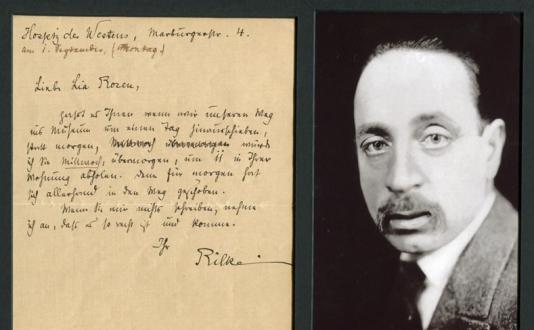 Hospiz des Westens, Marburgerstr. 4.
am 1. September, (Montag)
Liebe Lia Rosen,
paßt es Ihnen wenn wir unseren Weg
ins Museum um einen Tag hinausschieben,
statt morgen, Mittwoch übermorgen würde
ich Sie Mittwoch, übermorgen, um 11 in Ihrer
Wohnung abholen. Denn für morgen hat
sich allerhand in den Weg geschoben.
Wenn Sie mir nichts schreiben, nehme
ich an, daß es so recht ist und komme.
Ihr
Rilke